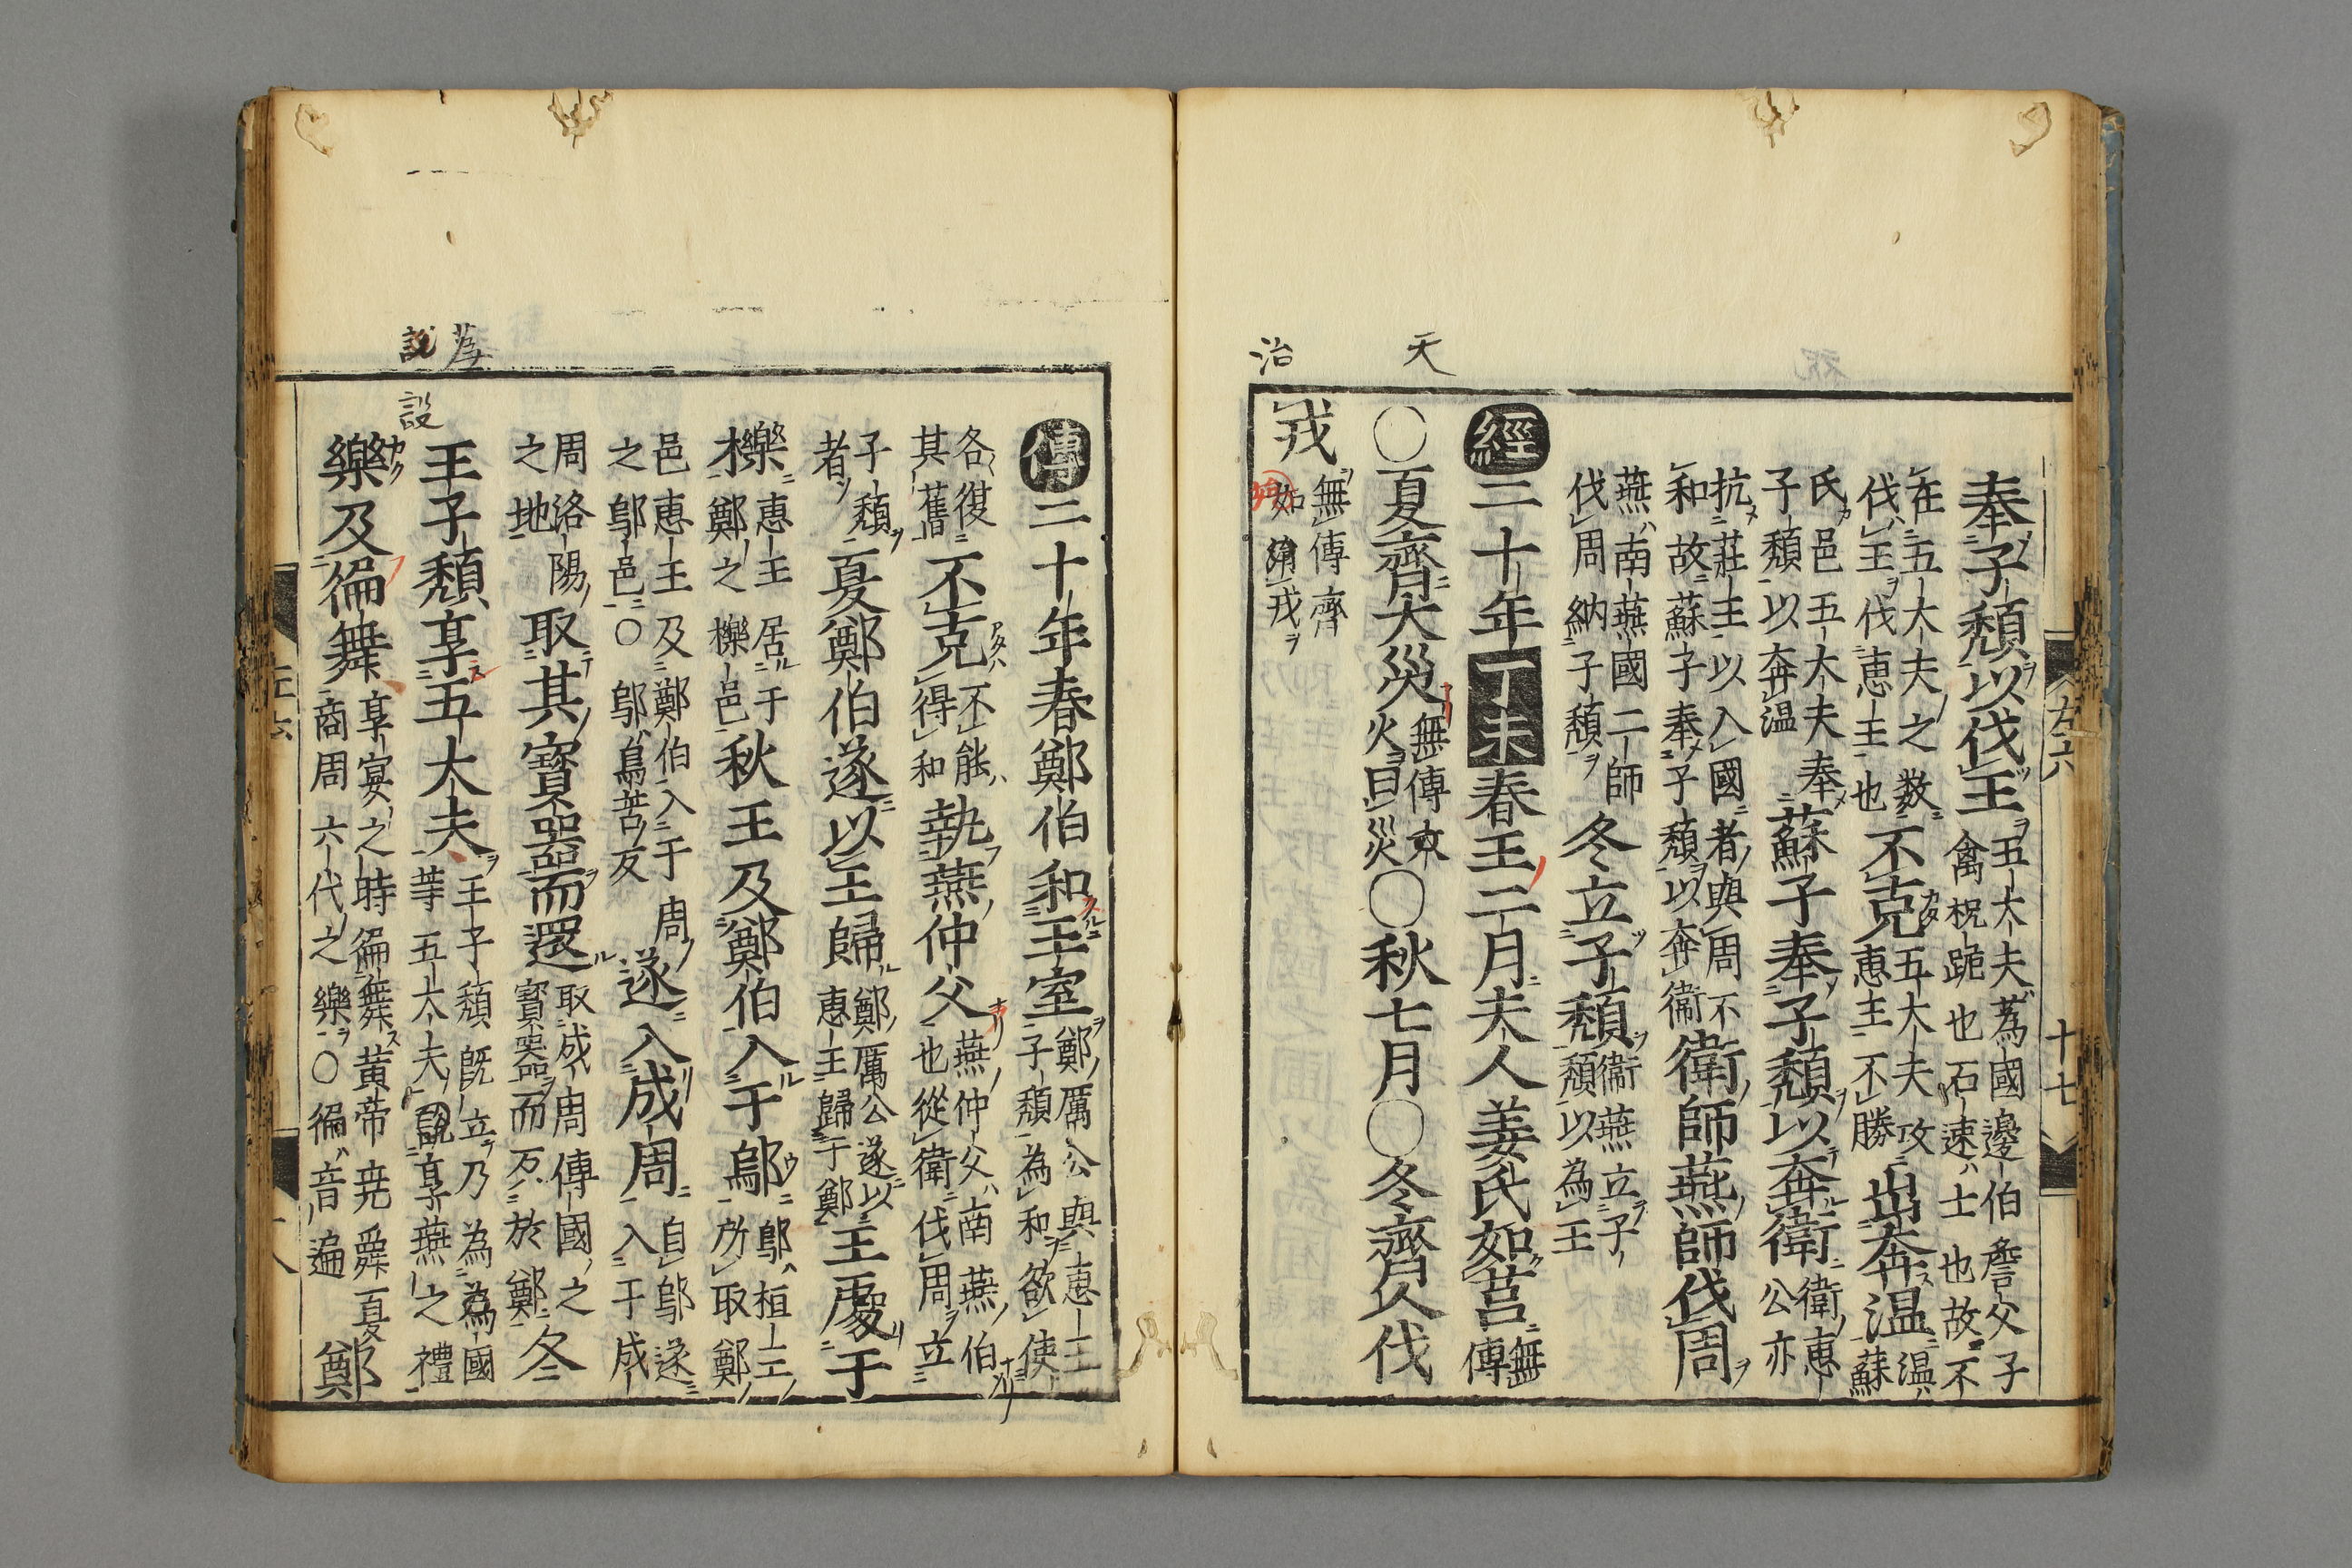 奉子頽以伐王五大夫為國邊伯詹父子
禽祝跪也石速士也故不
在五大夫之数不克五大夫攻出奔温温蘇
伐王伐恵王也恵王不勝
氏邑五大夫奉蘇子奉子頽以奔衛衛恵
子頽以奔温公亦
抗莊王以入國者與周不衛師燕師伐周
和故蘇子奉子頽以奔衞
燕南燕國二師冬立子頽衞燕立子
伐周納子頽頽以為王
經二十年丁未春王二月夫人姜氏如莒無
傳
〇夏齊大災無傳
火曰災〇秋七月〇冬齊人伐
戎無傳齊
如戎
天
治
左六
十七
傳二十年春鄭伯和王室鄭厲公與恵王
子頽為和欲使
各復不克不能執燕仲父燕仲父南燕伯
其舊得和也從衞伐周立
子頽夏鄭伯遂以王歸鄭厲公遂以王處于
者恵王歸于鄭
櫟恵王居于秋王及鄭伯入于鄔鄔桓王
鄭之櫟邑所取鄭
邑恵王及鄭伯入于周遂入成周自鄔遂
之鄔邑〇鄔烏苦反入于成
周洛陽取其寳器而還取成周傳國之冬
之地寳噐而于鄭
王子頽享五大夫王子頽既立乃為國
等五大夫設享燕之禮
樂及徧舞享宴之時徧舞黄帝堯舜夏鄭
商周六代之樂〇徧音遍
説
設